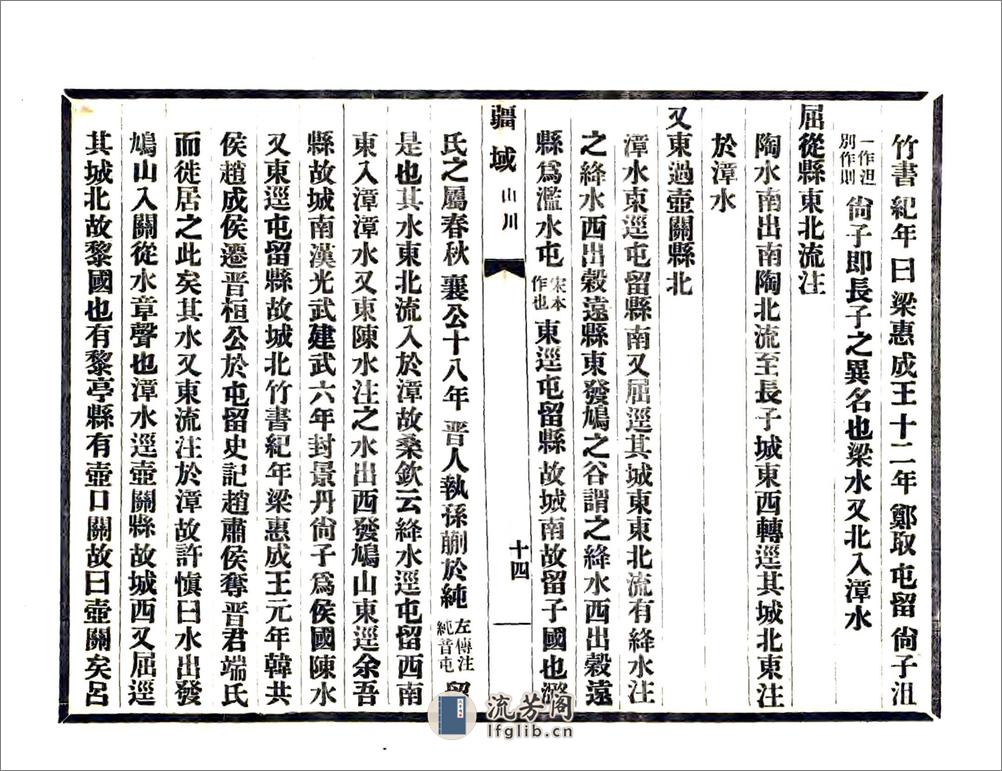 竹書紀年曰梁惠成王十二年鄭取屯留尙子沮
一作沮
別作則
尙子即長子之異名也梁水又北入漳水
屈從縣東北流注
陶水南出南陶北流至長子城東西轉逕其城北東注
於漳水
又東過壺關縣北
漳水東逕屯留縣南又屈逕其城東東北流有絳水注
之絳水西出穀遠縣東發鳩之谷謂之絳水西出穀遠
縣爲濫水屯
宋本
作也
東逕屯留縣故城南故留子國也潞
疆域
山川
十四
氏之屬春秋襄公十八年晉人執孫蒯於純
左傳注
純音屯
留
是也其水東北流入於漳故桑欽云絳水逕屯留西南
東入漳漳水又東陳水注之水出西發鳩山東逕余吾
縣故城南漢光武建武六年封景丹尙子爲侯國陳水
又東逕屯留縣故城北竹書紀年梁惠成王元年韓共
侯趙成侯遷晉桓公於屯留史記趙肅侯奪晉君端氏
而徙居之此矣其水又東流注於漳故許愼曰水出發
鳩山入關從水章聲也漳水逕壺關縣故城西又屈逕
其城北故黎國也有黎亭縣有壺口關故曰壺關矣呂
流芳阁
lfglib.cn